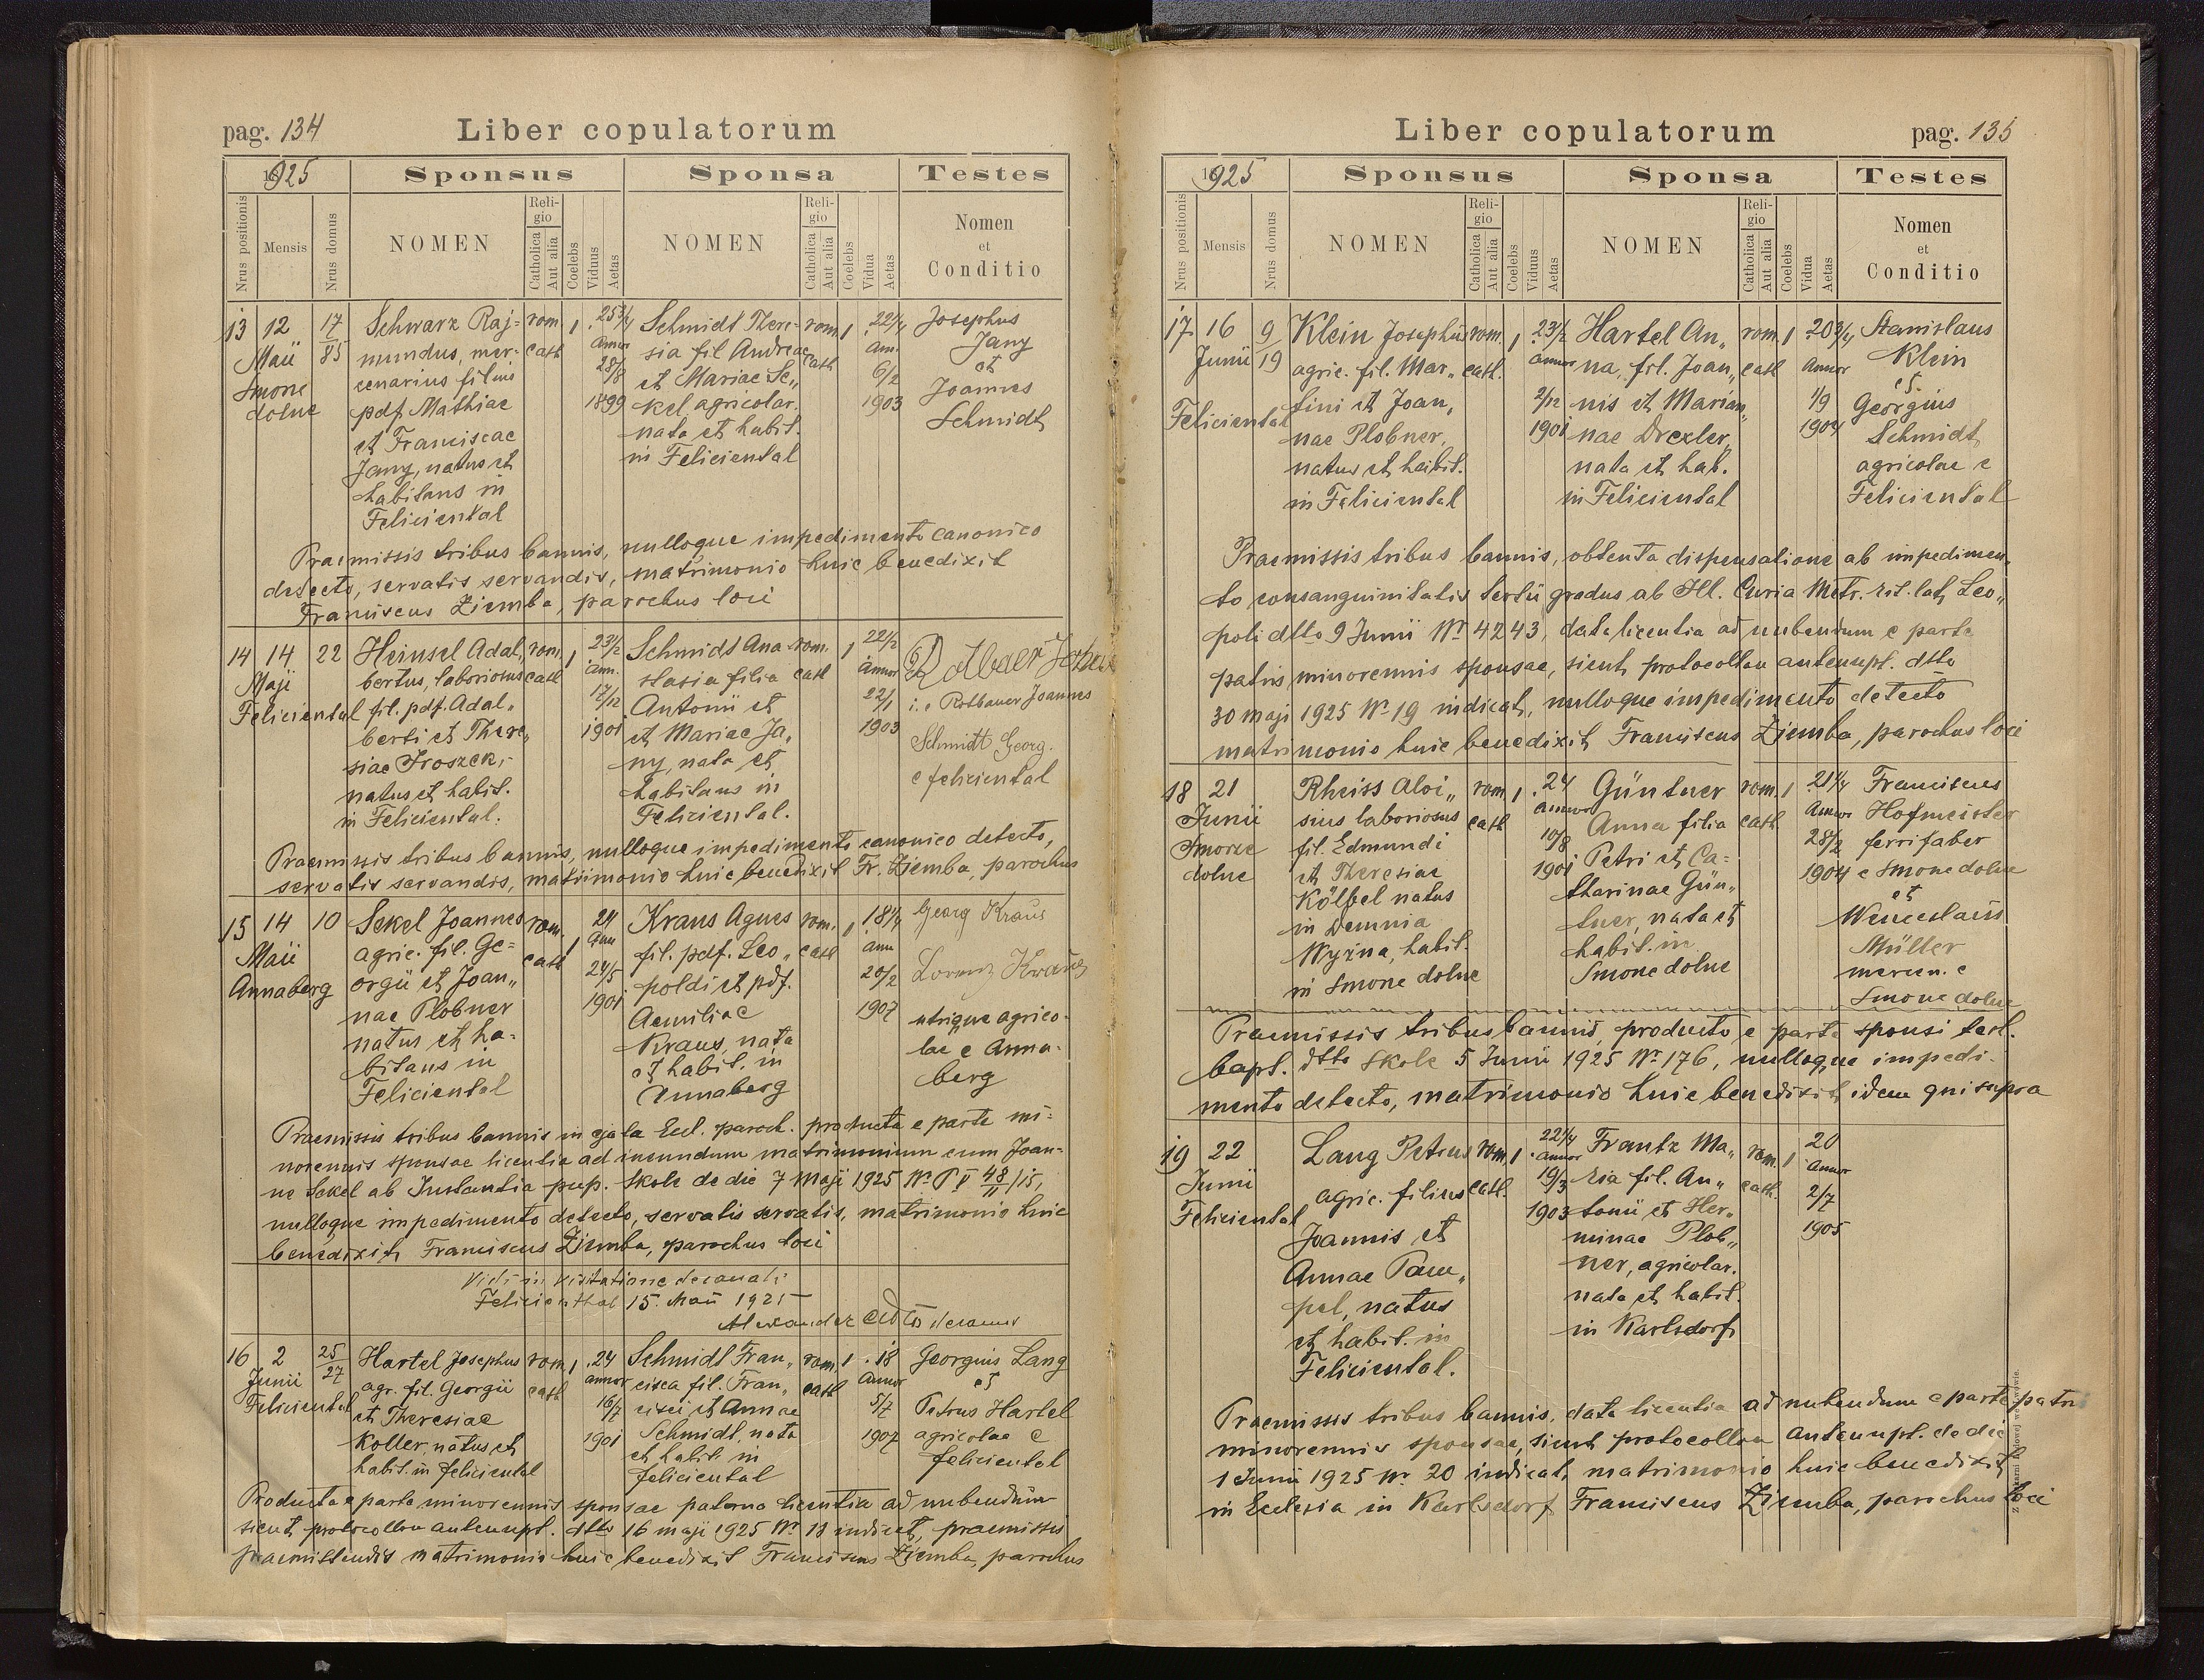 pag. 134
Liber copulatorum
1925
Sponsus
Sponsa
Testes
Nrus positionis
Mensis
Nrus domus
NOMEN
Religio
Catholica
Aut alia
Coelebs
Viduus
Aetas
NOMEN
Religio
Catholica
Aut alia
Coelebs
Vidua
Aetas
Nomen
et
Conditio
13
12
Maii
Smorze
dolne
17
85
Schwarz Raj=
mundus, mer=
cenarius filius
pdf. Mathiae
et Franciscae
Jany, natus et
habitans in
Feliciental
rom.
cath
1
25 3/4
annor
28/8
1899
Schmidt There=
sia fil Andreae
et Mariae Se„
kel agricolar.
nata et habit.
in Feliciental
rom.
cath
1
22 1/4
an.
6/2
1903
Josephus
Jany
et
Joannes
Schmidt
Praemissis tribus bannis, nulloque impedimento canonico
detecto, servatis servandis, matrimonio huic benedixit
Franciscus Ziemba, parochus loci
14
14
Maji
Feliciental
22
Heinsel Adal„
bertus, laboriosus
fil. pdf. Adal„
berti et There„
siae Froszek,
natus et habit.
in Feliciental.
rom.
cath
1
23 1/2
ann.
17/12
1901
Schmidt Ana
stasia filia
Antonii et
et Mariae Ja„
ny, nata et
habitans in
Feliciental.
rom.
cath
1
22 1/2
annor
22/1
1903
i. e Rotbauer Joannes
Schmidt Georg.
e feliciental
Praemissis tribus bannis, nulloque impedimento canonico detecto,
servatis servandis, matrimonio huic benedixit Fr. Ziemba, parochus
15
14
Maii
Annaberg
10
Sekel Joannes
agric. fil. Ge=
orgii et Joan„
nae Plobner
natus et ha=
bitans in
Feliciental
rom.
cath
1
24
ann
24/5
1901
Kraus Agnes
fil. pdf. Leo„
poldi et pdf.
Aemiliae
Kraus, nata
et habit. in
Annaberg
rom.
cath
1
18 1/4
ann
20/2
1907
Georg Kraus
Lorenz Kraus
utrique agrico-
lae e Anna-
berg
Praemissis tribus bannis in ejata Eccl. paroch. producta e parte mi=
norennis sponsae licentia ad ineundum matrimonium cum Joan=
ne Sekel ab Instantia pup. Skole de die 7 Maji 1925 Nr P V 48/11 /15,
nulloque impedimento detecto, servatis servatis, matrimonio huic
benedixit, Franciscus Ziemba, parochus loci
Vidi in visitatione decanali
Felicienthal 15. Maii 1925
Alexander decanus
16
2
Junii
Feliciental
25
27
Hartel Josephus
agr. fil. Georgii
et Theresiae
Koller, natus et
habit. in feliciental
rom.
cath
1
24
annor
16/7
1901
Schmidt Fran„
cisca fil. Fran„
cisci et Annae
Schmidt, nata
et habit. in
feliciental
rom.
cath
1
18
annor
5/7
1907
Georgius Lang
et
Petrus Hartel
agricolae e
feliciental
Producta e parte minorennis sponsae paterna licentia ad nubendum
sicut protocollon antenupt. dtto 16 maji 1925 Nr 13 indicat, praemissis
praemittendis matrimonio huic benedixit Franciscus Ziemba, parochus
Liber copulatorum
pag. 135
1925
Sponsus
Sponsa
Testes
Nrus positionis
Mensis
Nrus domus
NOMEN
Religio
Catholica
Aut alia
Coelebs
Viduus
Aetas
NOMEN
Religio
Catholica
Aut alia
Coelebs
Vidua
Aetas
Nomen
et
Conditio
17
16
Junii
Feliciental
9
19
Klein Josephus
agric. fil. Mar„
tini et Joan„
nae Plobner,
natus et habit.
in Feliciental
rom.
cath.
1
23 1/2
annor
2/12
1901
Hartel An„
na, fil. Joan„
nis et Marian„
nae Drexler,
nata et hab.
in Feliciental
rom.
cath
1
20 3/4
annor
1/9
1904
Stanislaus
Klein
et
Georgius
Schmidt,
agricolae e
Feliciental
Praemissis tribus bannis, obtenta dispensatione ab impedimen„
to consanguinitatis tertii gradus ab Ill. Curia Metr. rit. lat. Leo„
poli dtto 9 Junii Nr 4243, data licentia ad nubendum e parte
patris minorennis sponsae, sicut protocollon antenupt. dtto
30 maji 1925 Nr 19 indicat, nulloque impedimento detecto
matrimonio huic benedixit Franciscus Ziemba, parochus loci
18
21
Junii
Smorze
dolne
Rheiss Aloi„
sius laboriosus
fil. Edmundi
et Theresiae
Kölbel natus
in Demnia
Wyżna, habit.
in Smorze dolne
rom.
cath
1
24
annor
10/8
1901
Güntner
Anna filia
Petri et Ca=
tharinae Gün„
tner, nata et
habit. in
Smorze dolne
rom.
cath
1
21 1/4
annor
28/2
1904
Franciscus
Hofmeister
ferrifaber
e Smorze dolne
et
Wenceslaus
Müller
mercen. e
Smorze dolne
Praemissis tribus bannis, producto e parte sponsi test.
bapt. dtto Skole 5 Junii 1925 Nr 176, nulloque impedi-
mento detecto, matrimonio huic benedixit idem qui supra
19
22
Junii
Feliciental
Lang Petrus
agric. filius
Joannis et
Annae Pam„
pel, natus
et habit. in
Feliciental.
rom.
cath.
1
22 1/4
annor
19/3
1903
Frantz Ma„
ria fil. An„
tonii et Her„
minae Plob„
ner, agricolar.
nata et habit.
in Karlsdorf
rom.
cath.
1
20
annor
2/7
1905
Praemissis tribus bannis, data licentia ad nubendum e parte patris
minorennis sponsae, sicut protocollon antenupt. de die
1 Junii 1925 Nr 20 indicat, matrimonio huic benedixit
in Ecclesia in Karlsdorf Franciscus Ziemba, parochus loci